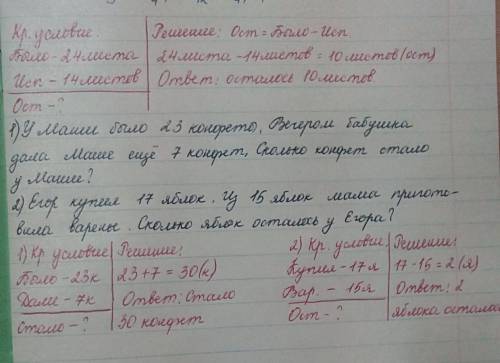 Кр. условие: Решение: Ост = Было - Исп.
Было - 24 листа 24 листа - 14 листов = 10 листов (ост)
Исп - 14 листов Ответ: осталось 10 листов.
Ост - ?
1) У Маши было 23 конфеты, Вечером бабушка
дала Маше ещё 7 конфет, Сколько конфет стало
у Маши?
2) Егор купил 17 яблок. Из 15 яблок мама пригото-
вила варенье. Сколько яблок осталось у Егора?
1) Кр условие: Решение: 2) Кр. условие: Решение:
Было - 23к 23 + 7 = 30 (к) Купил - 17я 17 - 15 = 2 (я)
Дали - 7к Ответ: стало Вар. - 15я Ответ: 2
Стало - ? 30 конфет Ост - ? яблока осталось